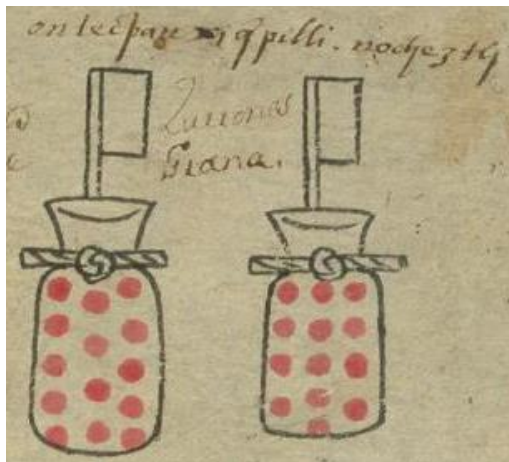 ontecpan xiq̃pilli. nocheztli
Zurrones
Grana.